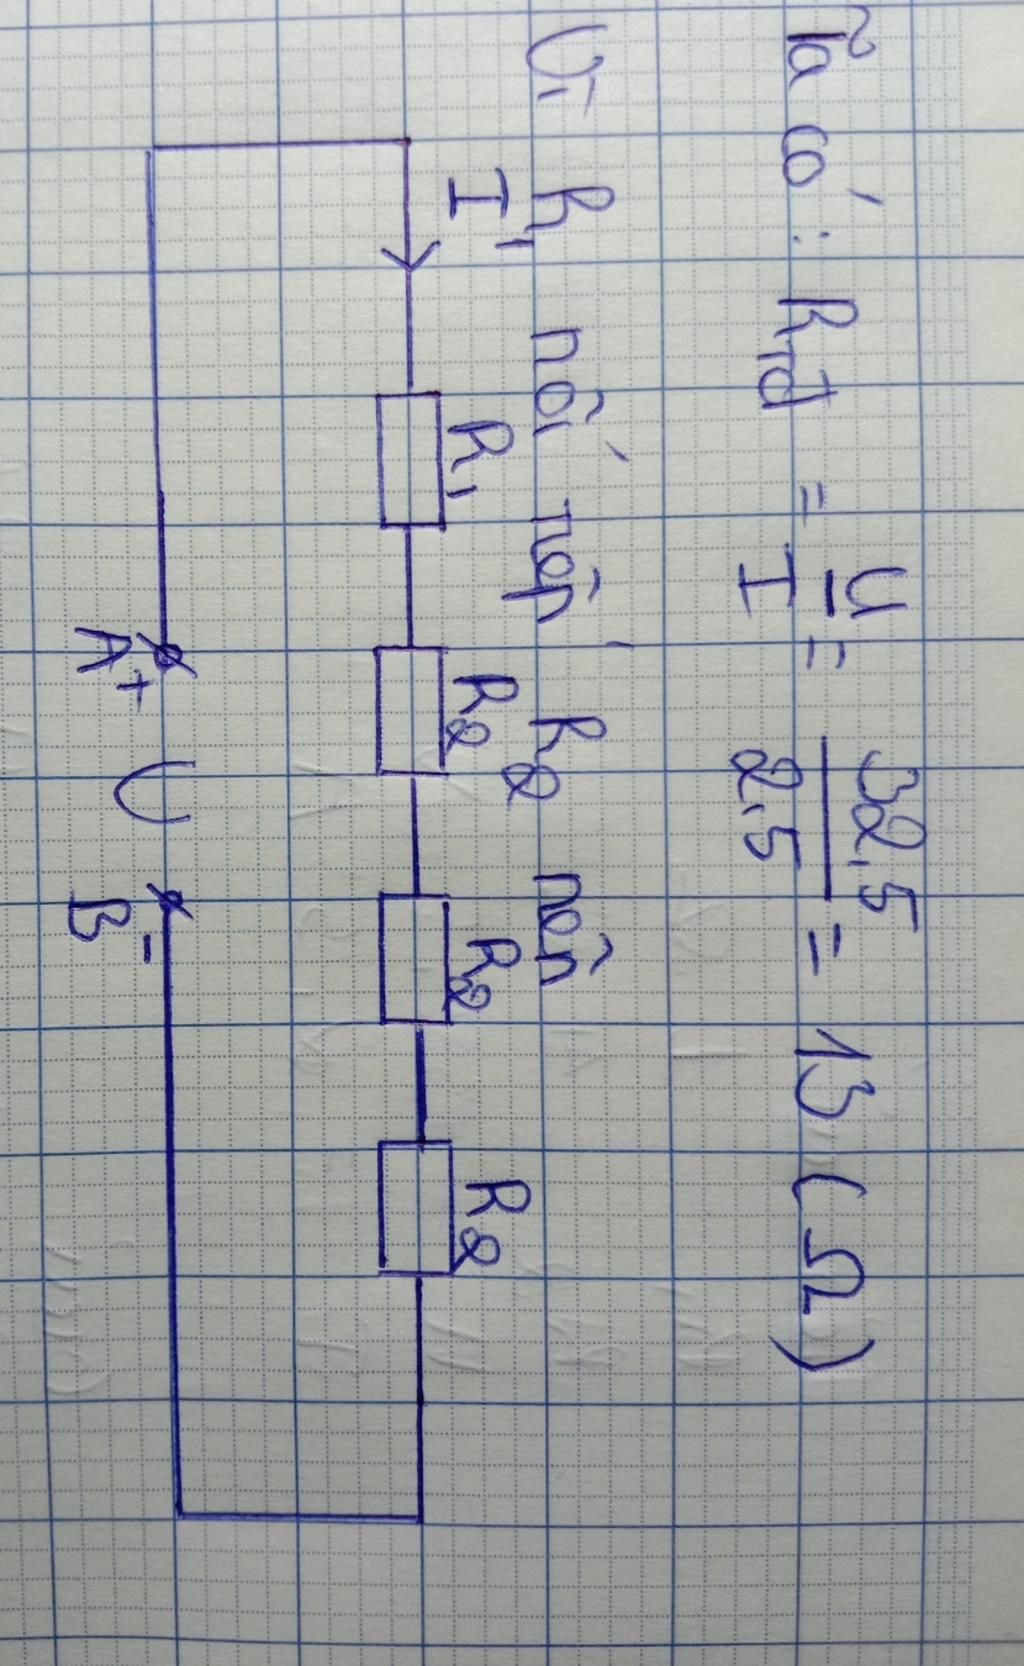 Ta có: R_tđ = U/I = 32,5/2,5 = 13 (Ω)
Vì R₁ nối nối R₂ nên
I₁
R₁ R₂ R₂ R₂
A+ U B-